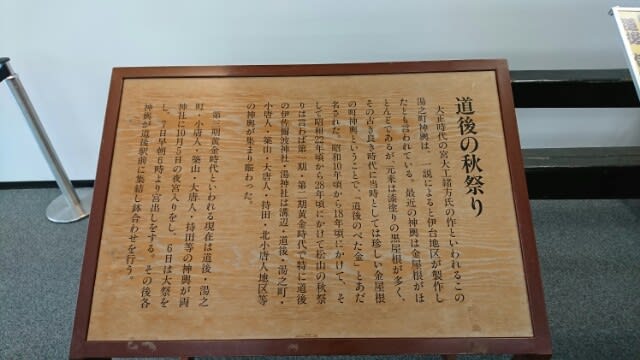 道後の秋祭り
大正時代の宮大工緒方氏の作といわれるこの
湯之町神輿は、一説によると伊台地区が製作し
たとも言われている。最近の神輿は金屋根がほ
とんどであるが、元来は漆塗りの黒屋根が多く、
その古き良き時代に当時としては珍しい金屋根
の町神輿ということで、「道後のべた金」とあだ
名された。昭和10年頃から18年頃にかけて、そ
して昭和22年頃から28年頃にかけて松山の秋祭
りは言わば第一期・第二期黄金時代で特に道後
の伊佐爾波神社・湯神社は溝辺・道後・湯之町・
小唐人・築山・大唐人・持田・北小唐人地区等
の神輿が集まり賑わった。
第三期黄金時代といわれる現在は道後・湯之
町・小唐人・築山・大唐人・持田等の神輿が両
神社に10月5日の夜宮入りをし、6日は大祭を
し、7日早朝6時より宮出しをする。その後各
神輿が道後駅前に集結し鉢合わせを行う。